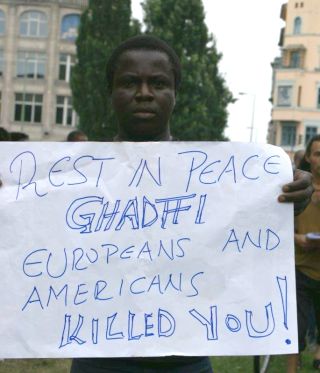 REST IN PEACE
GHADTFI
EUROPEANS AND
AMERICANS
KILLED YOU!